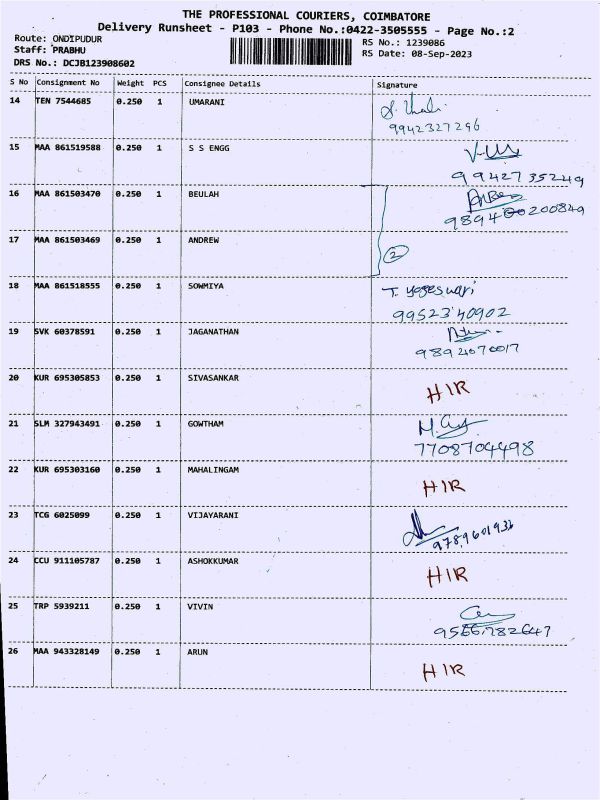 THE PROFESSIONAL COURIERS, COIMBATORE
Delivery Runsheet - P103 - Phone No.:0422-3505555 - Page No.:2
Route: ONDIPUDUR
RS No.: 1239086
Staff: PRABHU
RS Date: 08-Sep-2023
DRS No.: DCJB123908602
S No Consignment No Weight PCS Consignee Details Signature
14 TEN 7544685 0.250 1 UMARANI
9942327296
15 MAA 861519588 0.250 1 S S ENGG
9942735249
16 MAA 861503470 0.250 1 BEULAH
17 MAA 861503469 0.250 1 ANDREW
2
18 MAA 861518555 0.250 1 SOWMIYA T. Yogeswari
9952340902
19 SVK 60378591 0.250 1 JAGANATHAN
9894070017
20 KUR 695305853 0.250 1 SIVASANKAR HIR
21 SLM 327943491 0.250 1 GOWTHAM
7708704498
22 KUR 695303160 0.250 1 MAHALINGAM HIR
23 TCG 6025099 0.250 1 VIJAYARANI
24 CCU 911105787 0.250 1 ASHOKKUMAR HIR
25 TRP 5939211 0.250 1 VIVIN
9566782647
26 MAA 943328149 0.250 1 ARUN HIR